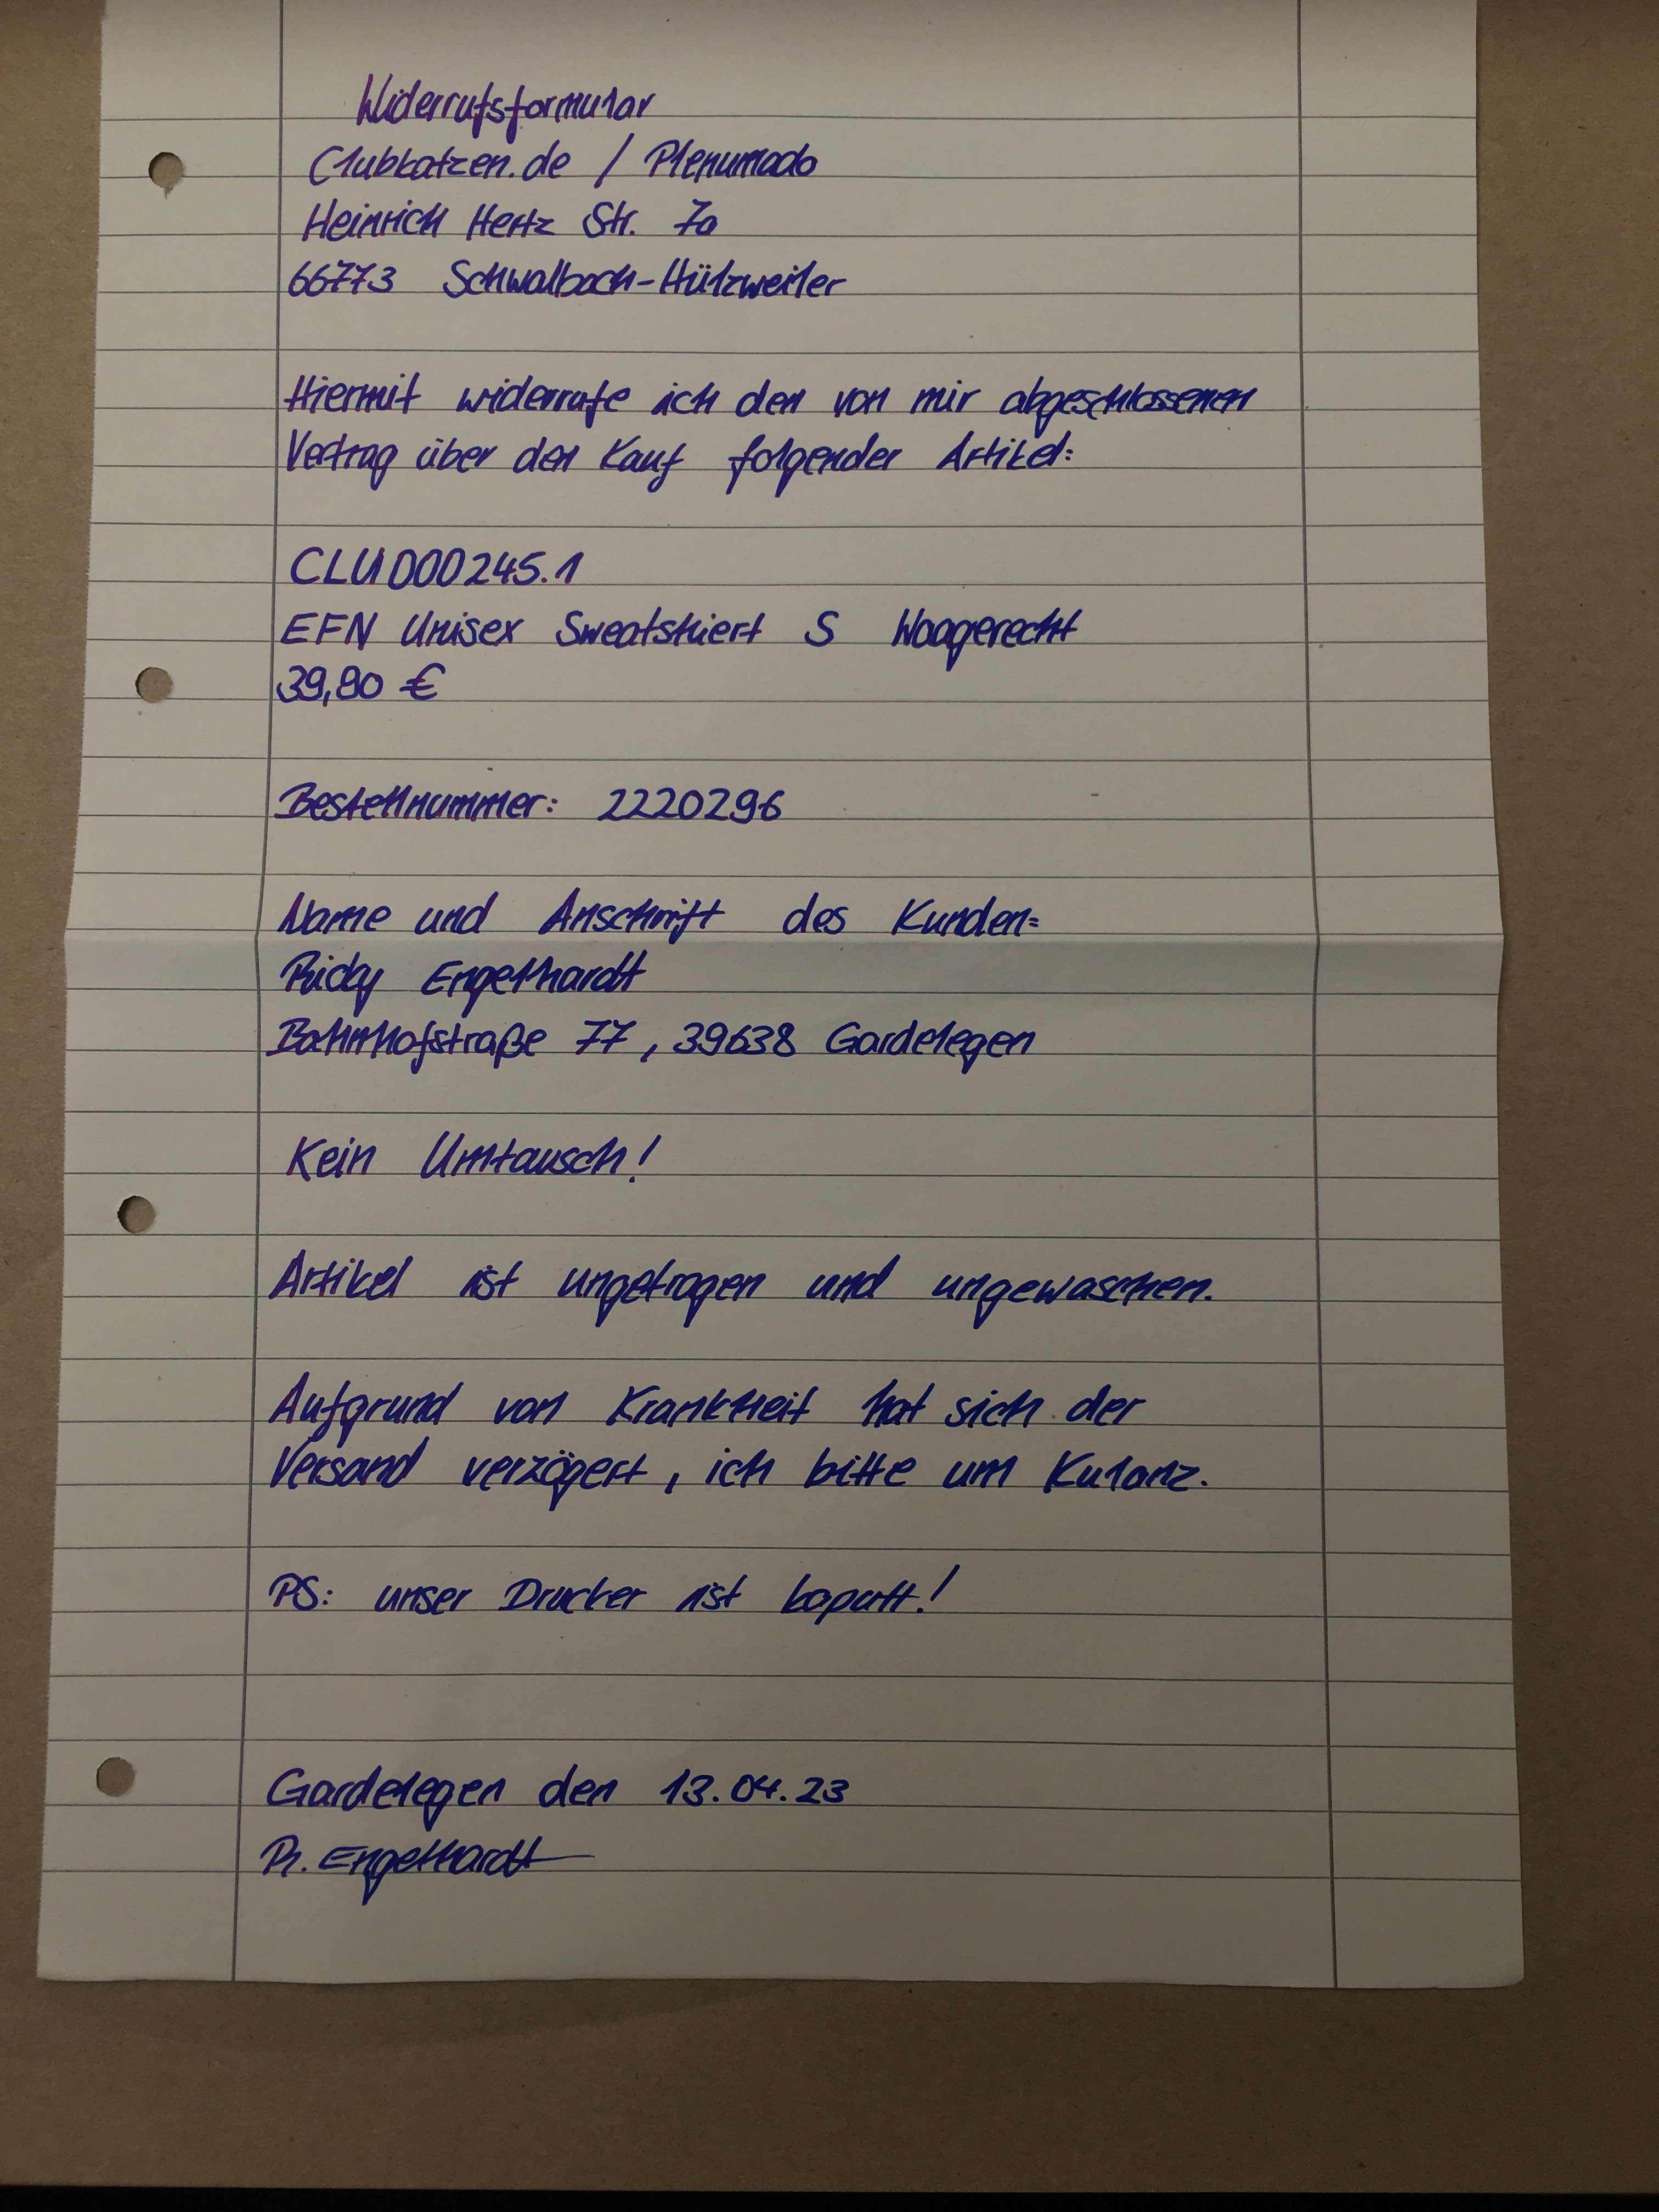 Widerrufsformular
Clubkatzen.de / Plenumado
Heinrich Hertz Str. 7a
66773 Schwalbach-Hülzweiler
Hiermit widerrufe ich den von mir abgeschlossenen
Vertrag über den Kauf folgender Artikel:
CLU000245.1
EFN Unisex Sweatshiert S Waagerecht
39,90 €
Bestellnummer: 2220296
Name und Anschrift des Kunden:
Ricky Engelhardt
Bahnhofstraße 77, 39638 Gardelegen
Kein Umtausch!
Artikel ist ungetragen und ungewaschen.
Aufgrund von Krankheit hat sich der
Versand verzögert, ich bitte um Kulanz.
PS: unser Drucker ist kaputt!
Gardelegen den 13.04.23
R. Engelhardt